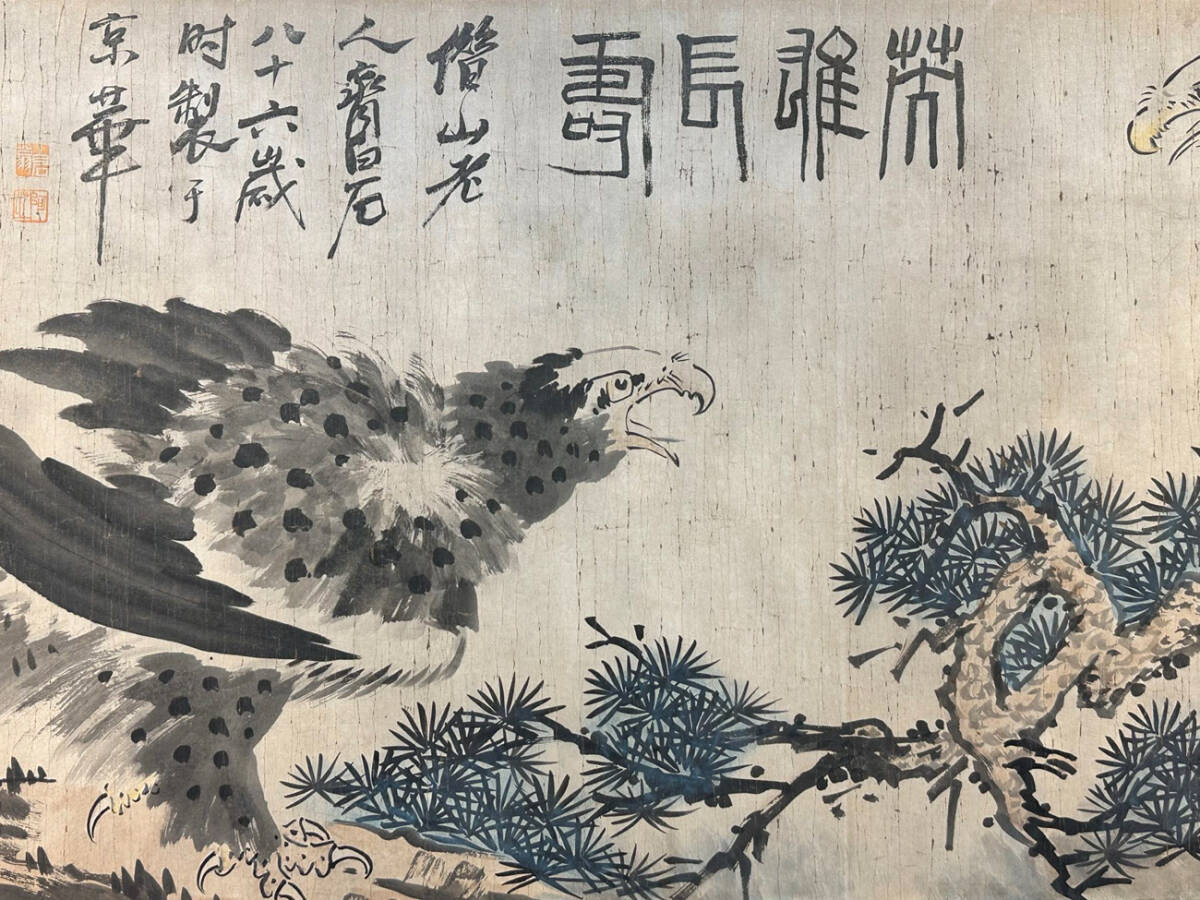 英雄長壽
借山老
人齊白石
八十六歲
时製于
京華